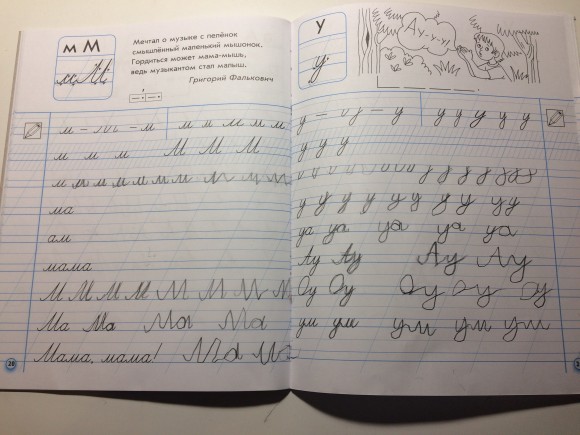 м М
м М
Мечтал о музыке с пелёнок
смышлённый маленький мышонок.
Гордиться может мама-мышь,
ведь музыкантом стал малыш.
Григорий Фалькович
м – м м м м м м
м м м М М М
м м м м м м м м м м м
ма
ам
мама
М М М М М М М М М
Ма Ма Ма Ма
Мама, мама! Ма Ма
20
У
у
Ау-у-у!
у – у – у у у у у у
у у у
у у у у у у
у у у у у у у у у у у
уа уа уа уа уа
Ау Ау Ау Ау
Оу Оу Оу Оу Оу
ум ум ум ум ум